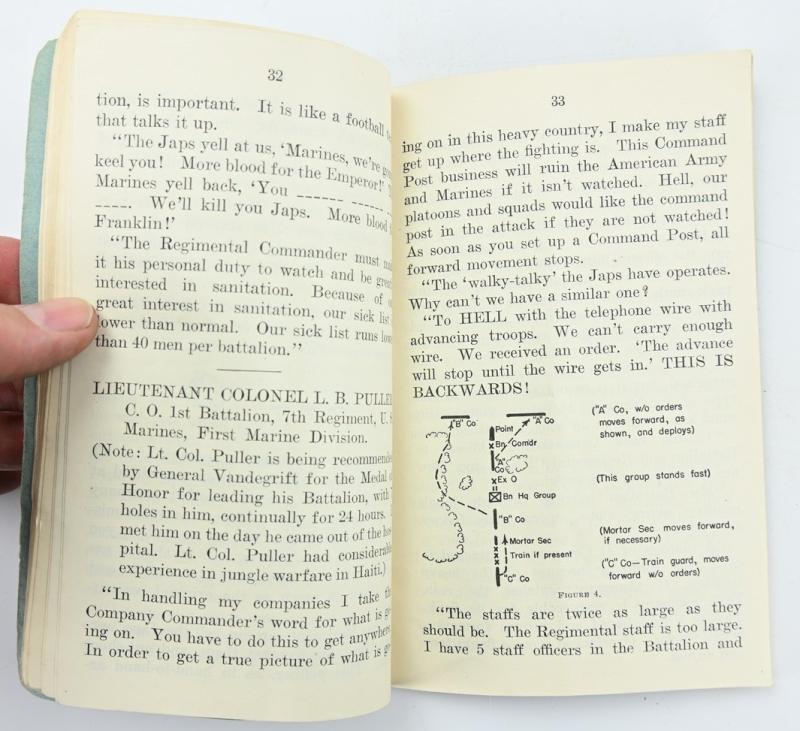 32
tion, is important. It is like a football
that talks it up.
"The Japs yell at us, 'Marines, we're
keel you! More blood for the Emperor!'
Marines yell back, 'You ______ _____
____. We'll kill you Japs. More blood
Franklin!'
"The Regimental Commander must
it his personal duty to watch and be
interested in sanitation. Because of
great interest in sanitation, our sick list
lower than normal. Our sick list runs
than 40 men per battalion."
LIEUTENANT COLONEL L. B. PULLER
C. O. 1st Battalion, 7th Regiment, U. S.
Marines, First Marine Division.
(Note: Lt. Col. Puller is being recommended
by General Vandegrift for the Medal of
Honor for leading his Battalion, with
holes in him, continually for 24 hours.
met him on the day he came out of the
pital. Lt. Col. Puller had considerable
experience in jungle warfare in Haiti.)
"In handling my companies I take the
Company Commander's word for what is
ing on. You have to do this to get anywhere.
In order to get a true picture of what is
33
ing on in this heavy country, I make my staff
get up where the fighting is. This Command
Post business will ruin the American Army
and Marines if it isn't watched. Hell, our
platoons and squads would like the command
post in the attack if they are not watched!
As soon as you set up a Command Post, all
forward movement stops.
"The 'walky-talky' the Japs have operates.
Why can't we have a similar one?
"To HELL with the telephone wire with
advancing troops. We can't carry enough
wire. We received an order. 'The advance
will stop until the wire gets in.' THIS IS
BACKWARDS!
"B" Co
"A" Co
Point
Bn Comdr
"A"
Co
Ex O
Bn Hq Group
"B" Co
Mortar Sec
Train if present
"C" Co
("A" Co, w/o orders
moves forward, as
shown, and deploys)
(This group stands fast)
(Mortar Sec moves forward,
if necessary)
("C" Co—Train guard, moves
forward w/o orders)
FIGURE 4.
"The staffs are twice as large as they
should be. The Regimental staff is too large.
I have 5 staff officers in the Battalion and